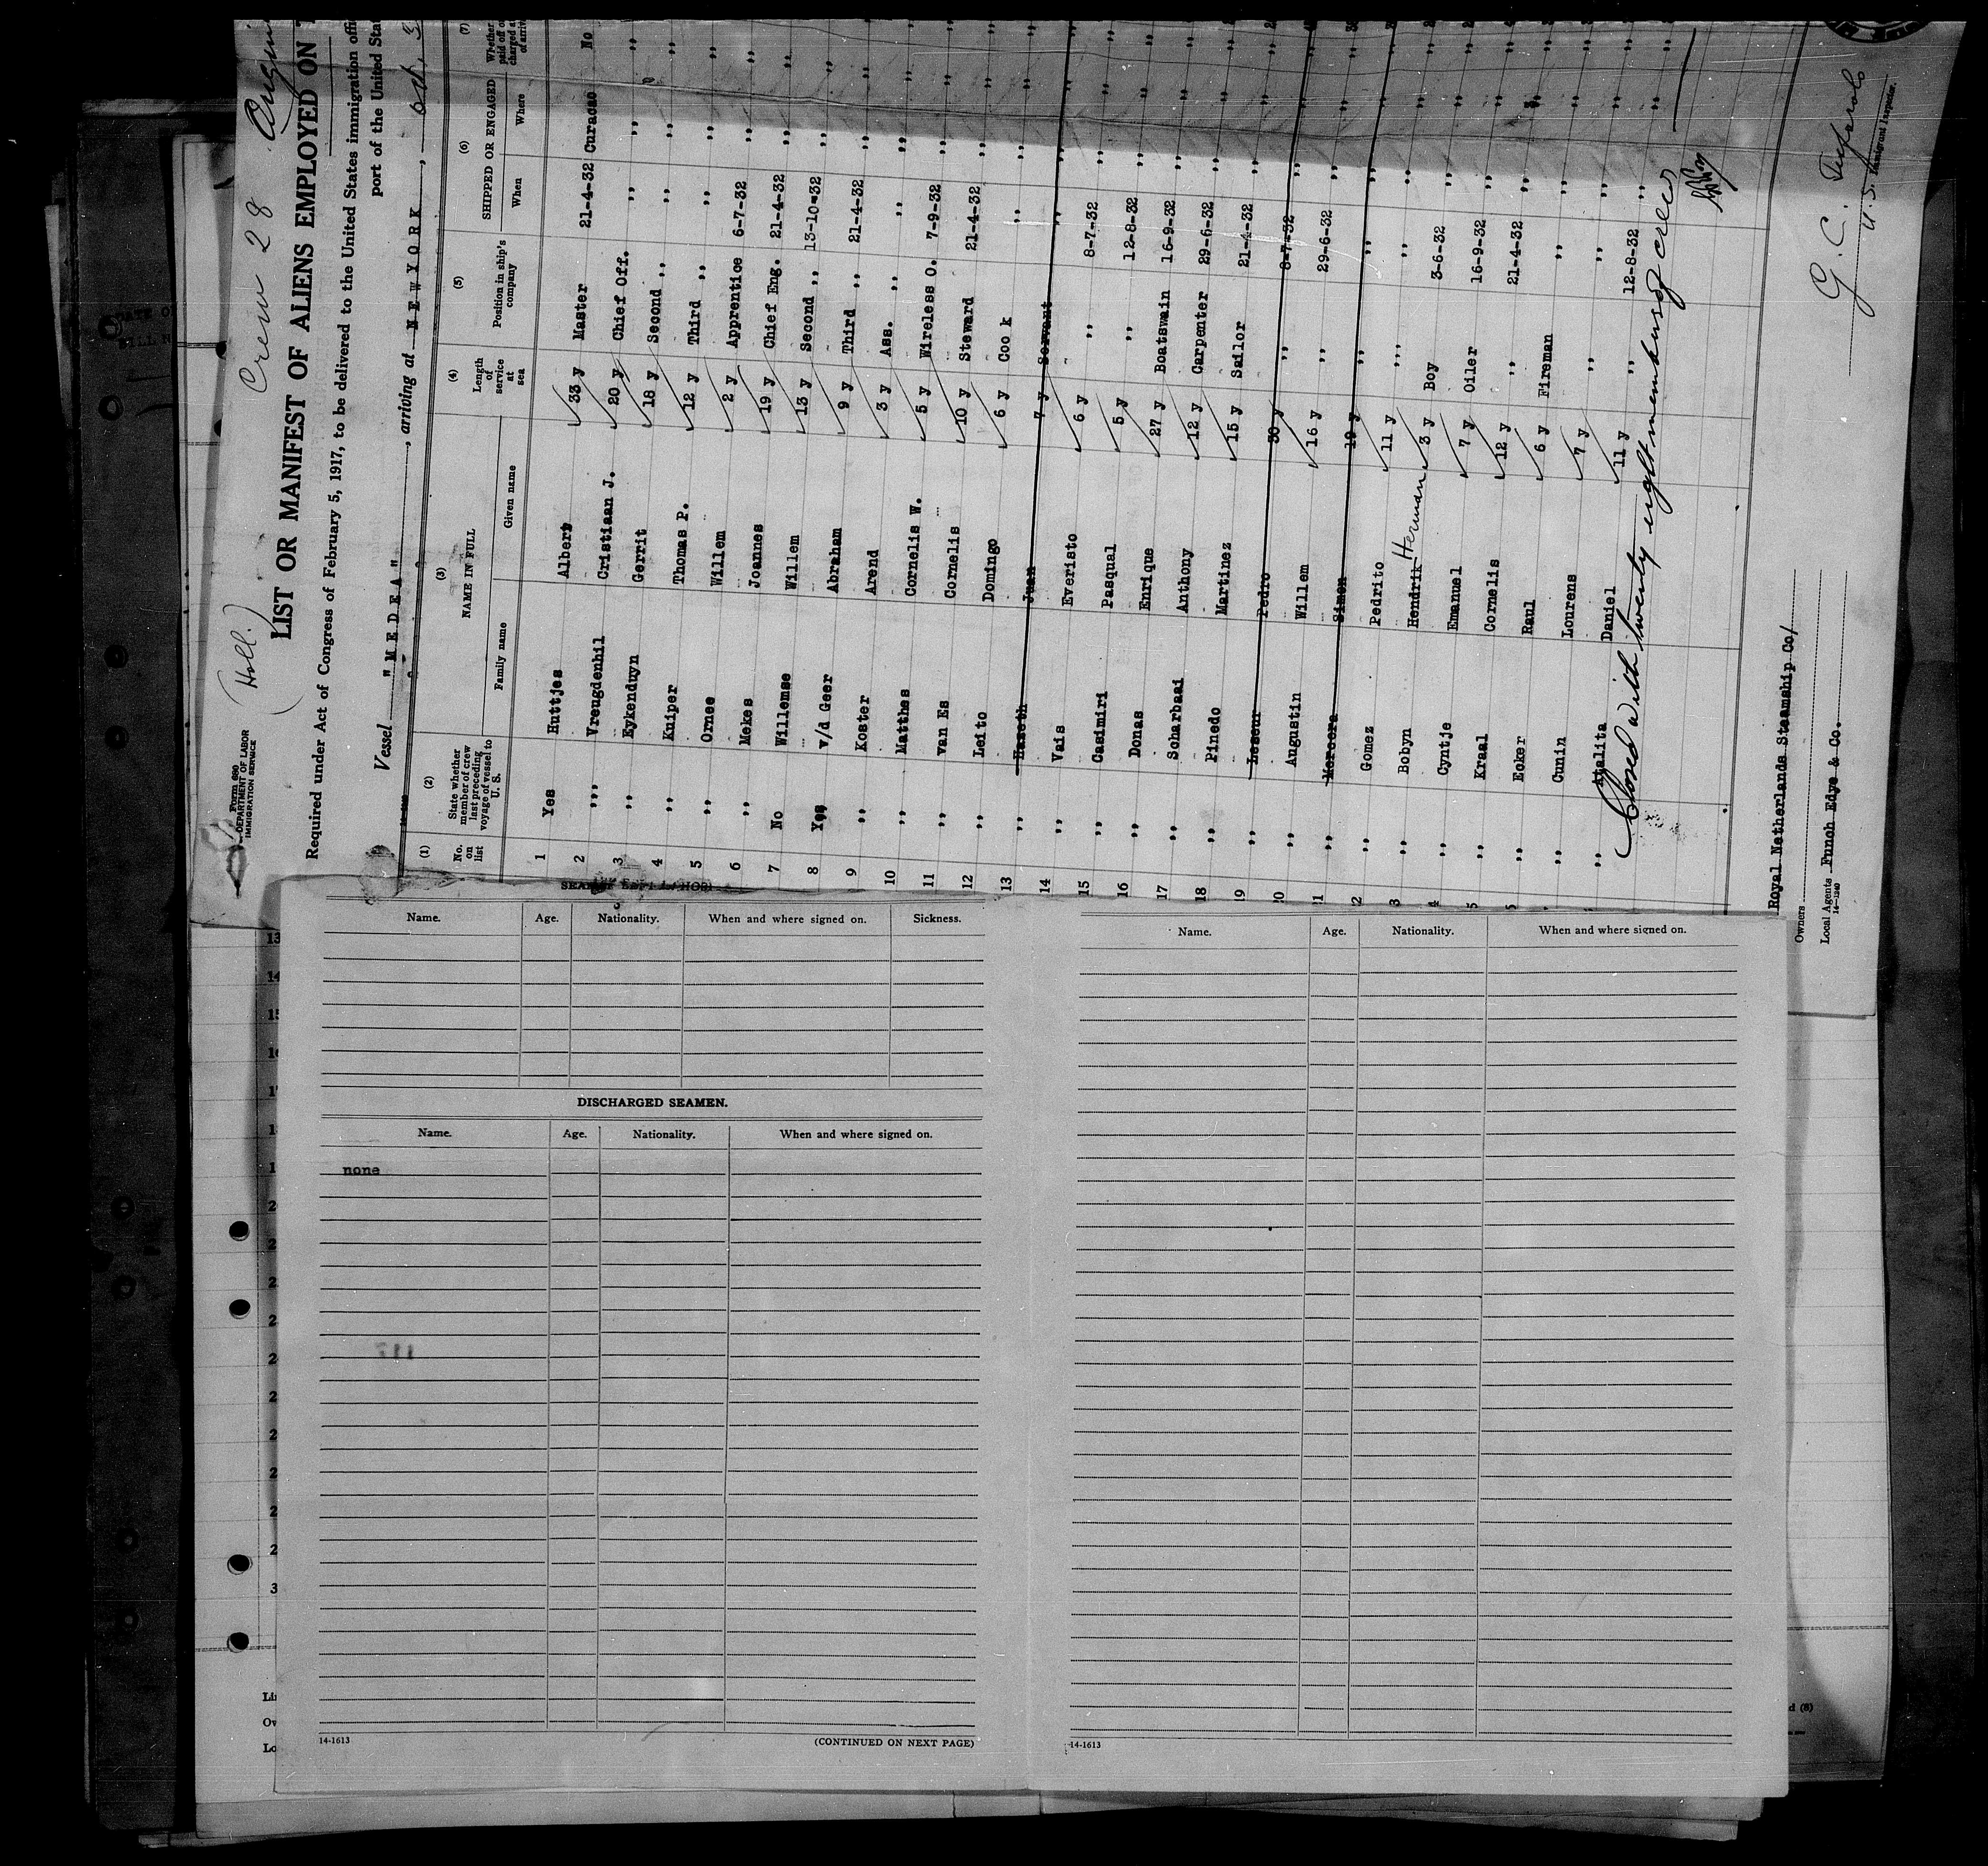 (Holl.) Crew 28
Form 680
U.S. DEPARTMENT OF LABOR
IMMIGRATION SERVICE
LIST OR MANIFEST OF ALIENS EMPLOYED ON
Required under Act of Congress of February 5, 1917, to be delivered to the United States immigration
port of the United
Vessel "MEDEA", arriving at NEWYORK,
(1) (2) (3) (4) (5) (6) (7)
No. on list
State whether member of crew last preceding voyage of vessel to U. S.
NAME IN FULL
Family name Given name
Length of service at sea
Position in ship's company
SHIPPED OR ENGAGED
When Where
1 Yes Huttjes Albert 33 y Master 21-4-32 Curacao No
2 ,,, Vreugdenhil Cristiaan J. 20 y Chief Off. ,, ,, ,,
3 ,, Eykenduyn Gerrit 18 y Second ,, ,, ,, ,,
4 ,, Kuiper Thomas P. 12 y Third ,, ,, ,, ,,
5 ,, Ornee Willem 2 y Apprentice 6-7-32 ,, ,,
6 ,, Mekes Joannes 19 y Chief Eng. 21-4-32 ,, ,,
7 No Willemse Willem 13 y Second ,, 13-10-32 ,, ,,
8 Yes v/d Geer Abraham 9 y Third ,, 21-4-32 ,, ,,
9 ,, Koster Arend 3 y Ass. ,, ,, ,, ,,
10 ,, Matthes Cornelis W. 5 y Wireless O. 7-9-32 ,, ,,
11 ,, van Es Cornelis 10 y Steward 21-4-32 ,, ,,
12 ,, Leito Domingo 6 y Coo k ,, ,, ,,
13 ,, Haseth Juan 7 y Servant ,, ,, ,,
14 ,, Vais Everisto 6 y ,, 8-7-32 ,, ,,
15 ,, Casimiri Pasqual 5 y ,, 12-8-32 ,, ,,
16 ,, Donas Enrique 27 y Boatswain 16-9-32 ,, ,,
17 ,, Scharbaai Anthony 12 y Carpenter 29-6-32 ,, ,,
18 ,, Pinedo Martinez 15 y Sailor 21-4-32 ,, ,,
19 ,, Leseur Pedro 30 y ,, 8-7-32 ,, ,,
20 ,, Augustin Willem 16 y ,, 29-6-32 ,, ,,
21 ,, Mercera Simon 19 y ,, ,, ,, ,,
2 ,, Gomez Pedrito 11 y ,,, ,, ,, ,,
3 ,, Bobyn Hendrik Herman 3 y Boy 3-6-32 ,, ,,
4 ,, Cyntje Emanuel 7 y Oiler 16-9-32 ,, ,,
5 ,, Kraal Cornelis 12 y ,, 21-4-32 ,, ,,
,, Ecker Raul 6 y Fireman ,, ,, ,,
,, Cunin Lourens 7 y ,, ,, ,, ,,
,, Atalita Daniel 11 y ,, 12-8-32 ,, ,,
Closed with twenty eight members of crew
Owners Royal Netherlands Steamship Co/
Local Agents Funch Edye & Co.
14-1240
G. C.
U.S. Immigrant Inspector.
Name. Age. Nationality. When and where signed on. Sickness.
DISCHARGED SEAMEN.
Name. Age. Nationality. When and where signed on.
none
117
14-1613 (CONTINUED ON NEXT PAGE)
Name. Age. Nationality. When and where signed on.
14-1613
13
14
15